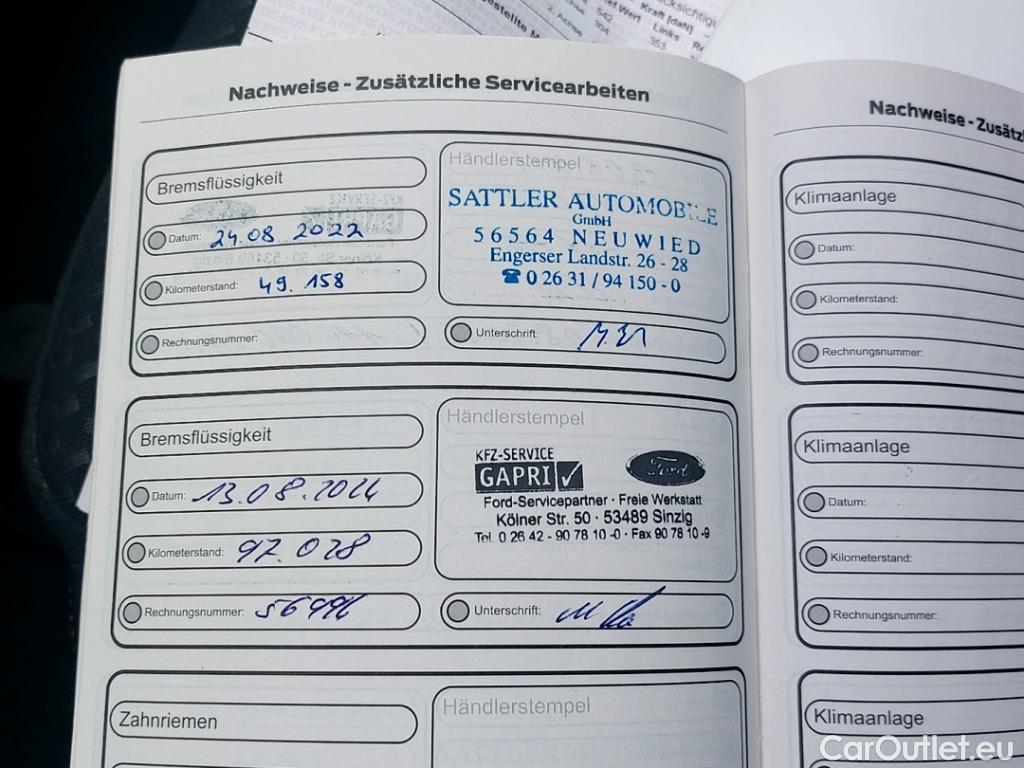 Kraft [daN]
Links
542
304
353
2. Achse
Nachweise - Zusätzliche Servicearbeiten
Bremsflüssigkeit
Datum: 24.08 2022
Kilometerstand: 49. 158
Rechnungsnummer:
Händlerstempel
SATTLER AUTOMOBILE
GmbH
56564 NEUWIED
Engerser Landstr. 26 - 28
☎ 0 26 31 / 94 150 - 0
Unterschrift:
Bremsflüssigkeit
Datum: 13.08.2024
Kilometerstand: 97.028
Rechnungsnummer:
Händlerstempel
KFZ-SERVICE
GAPRI
Ford
Ford-Servicepartner · Freie Werkstatt
Kölner Str. 50 · 53489 Sinzig
Tel. 0 26 42 - 90 78 10 -0 · Fax 90 78 10 -9
Unterschrift:
Zahnriemen
Händlerstempel
Nachweise - Zusätzl
Klimaanlage
Datum:
Kilometerstand:
Rechnungsnummer:
Klimaanlage
Datum:
Kilometerstand:
Rechnungsnummer:
Klimaanlage
CarOutlet.eu